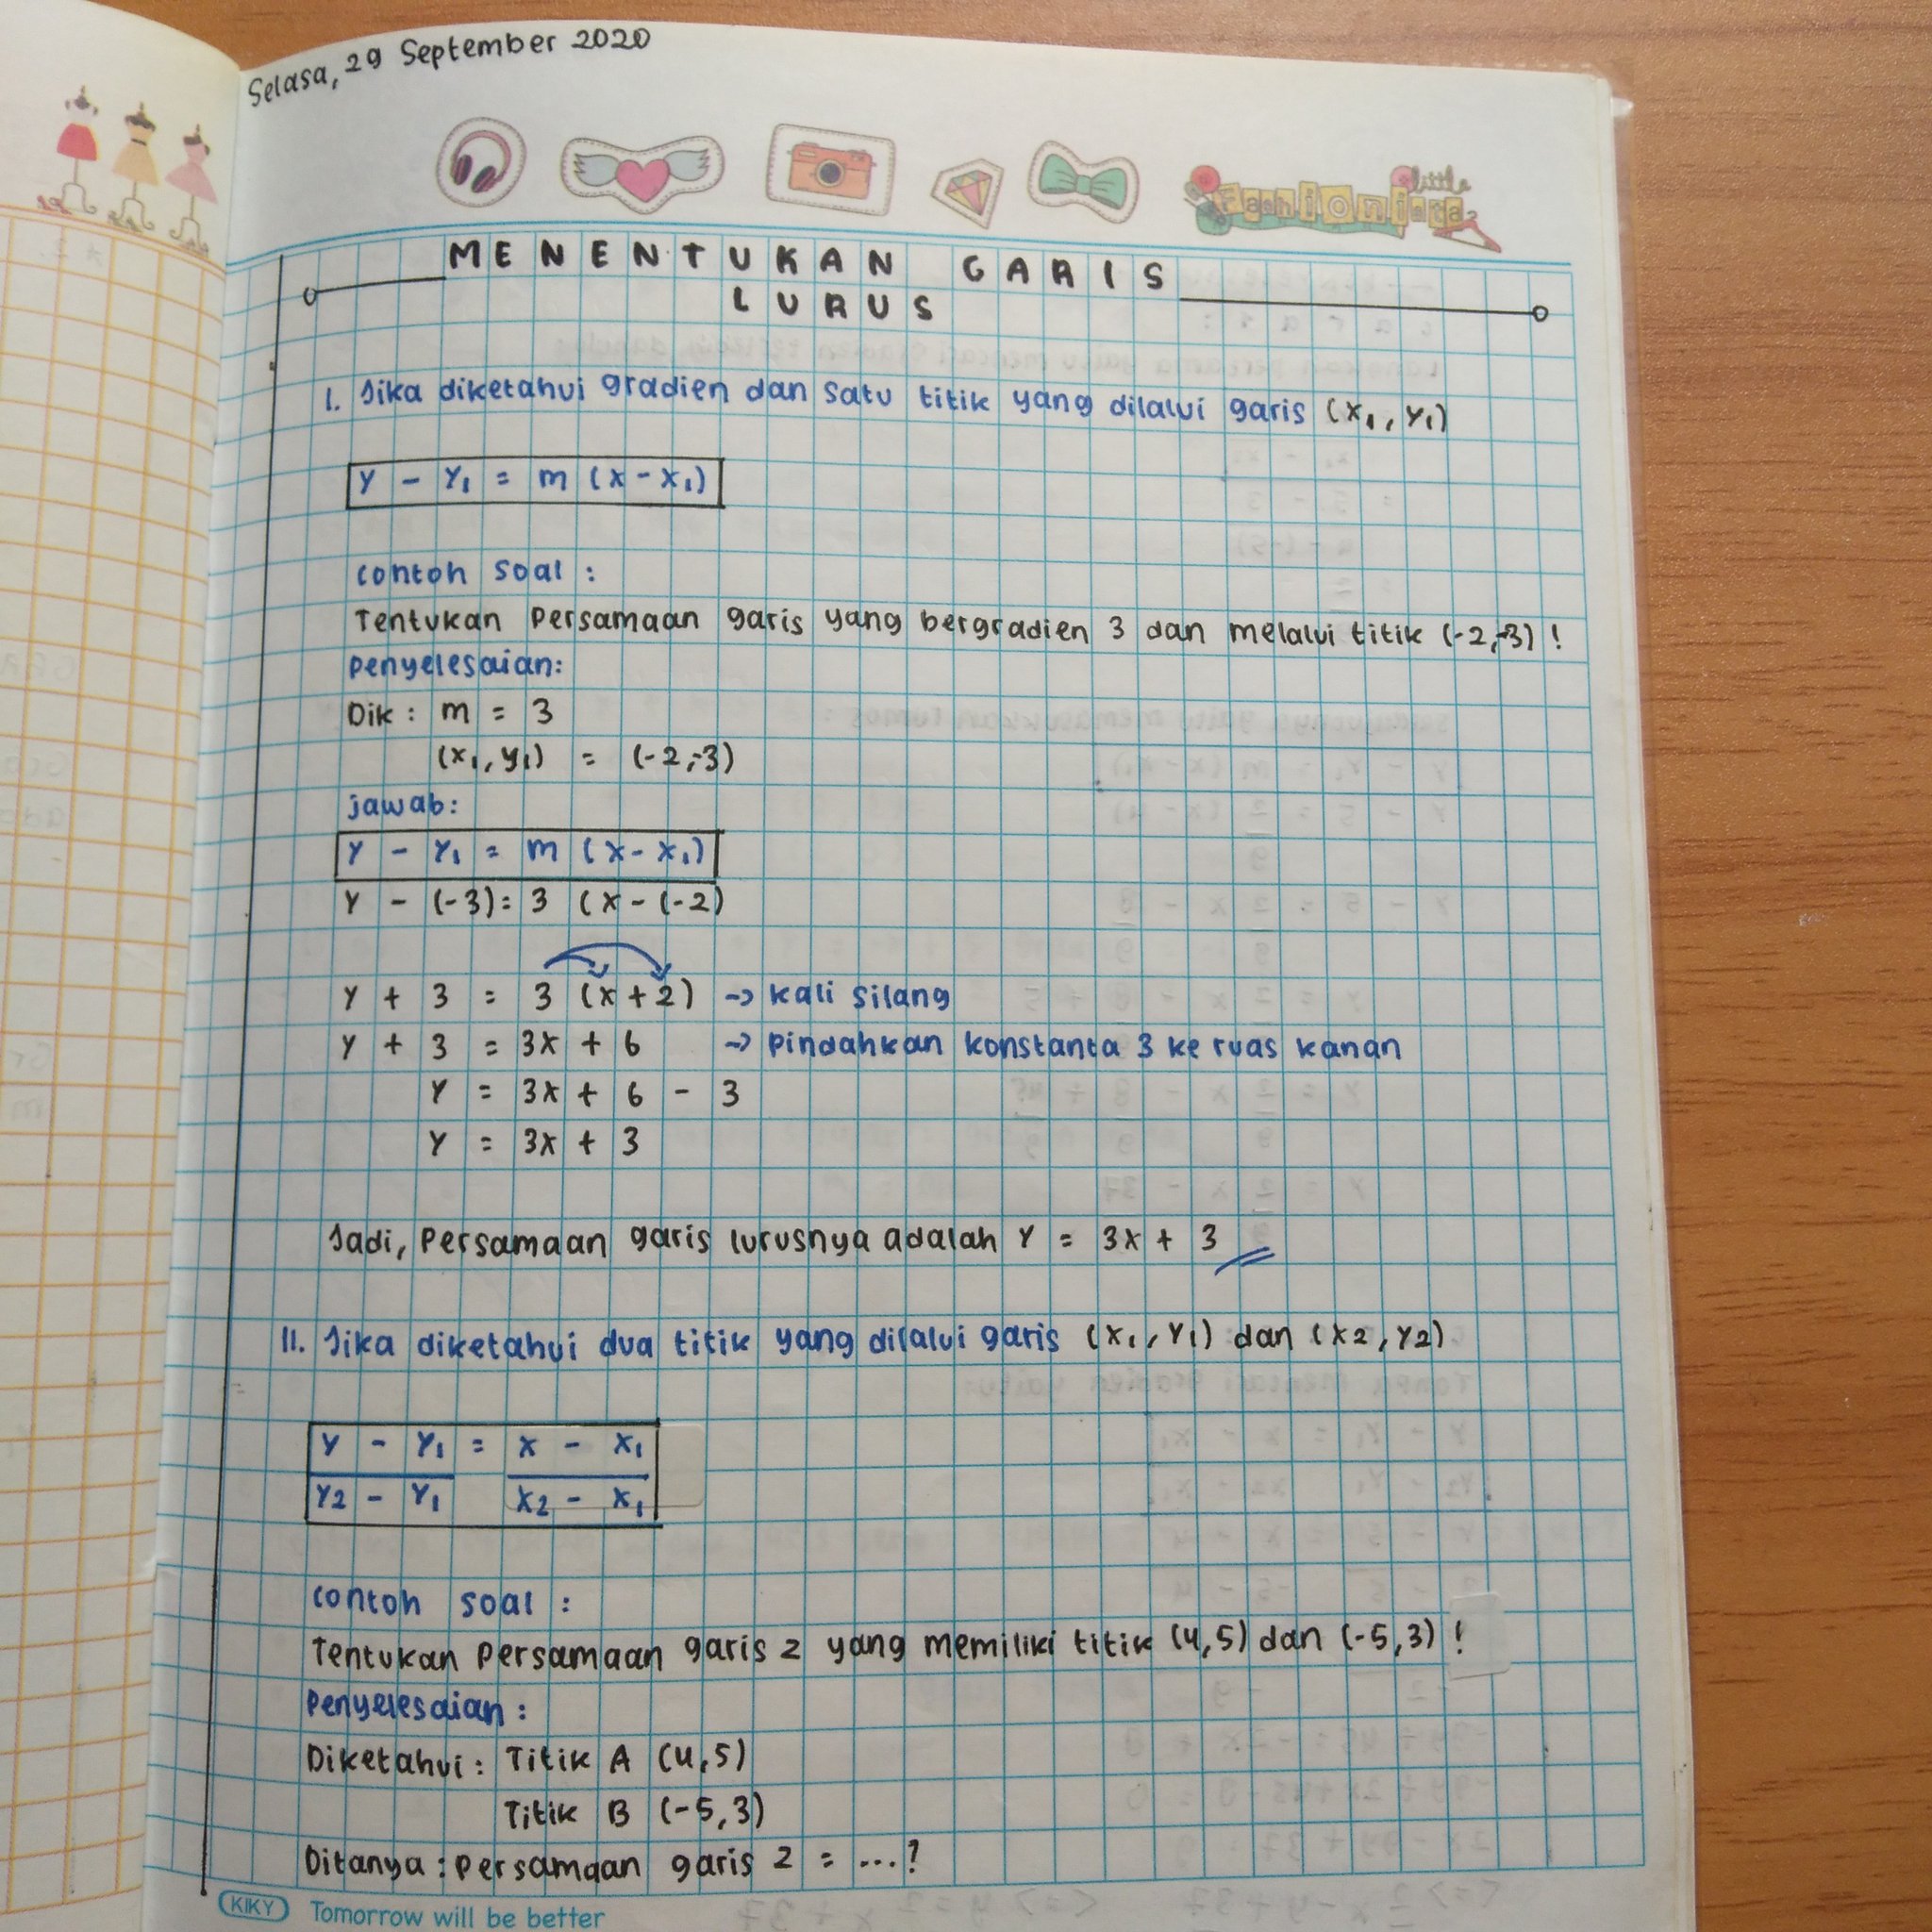 Selasa, 29 September 2020
little
Fashionista
MENENTUKAN GARIS
LURUS
I. Jika diketahui gradien dan satu titik yang dilalui garis (x₁, y₁)
y - y₁ = m (x - x₁)
contoh soal :
Tentukan Persamaan garis yang bergradien 3 dan melalui titik (-2,-3) !
Penyelesaian:
Dik : m = 3
(x₁, y₁) = (-2,-3)
jawab:
y - y₁ = m (x - x₁)
y - (-3) = 3 (x - (-2)
y + 3 = 3 (x + 2) -> kali silang
y + 3 = 3x + 6 -> Pindahkan konstanta 3 ke ruas kanan
y = 3x + 6 - 3
y = 3x + 3
Jadi, Persamaan garis lurusnya adalah y = 3x + 3
II. Jika diketahui dua titik yang dilalui garis (x₁, y₁) dan (x2, y2)
y - y₁ = x - x₁
y2 - y₁ x2 - x₁
contoh soal :
Tentukan Persamaan garis 2 yang memiliki titik (4,5) dan (-5,3) !
Penyelesaian :
Diketahui : Titik A (4,5)
Titik B (-5,3)
Ditanya : Persamaan garis 2 = ...?
KIKY Tomorrow will be better